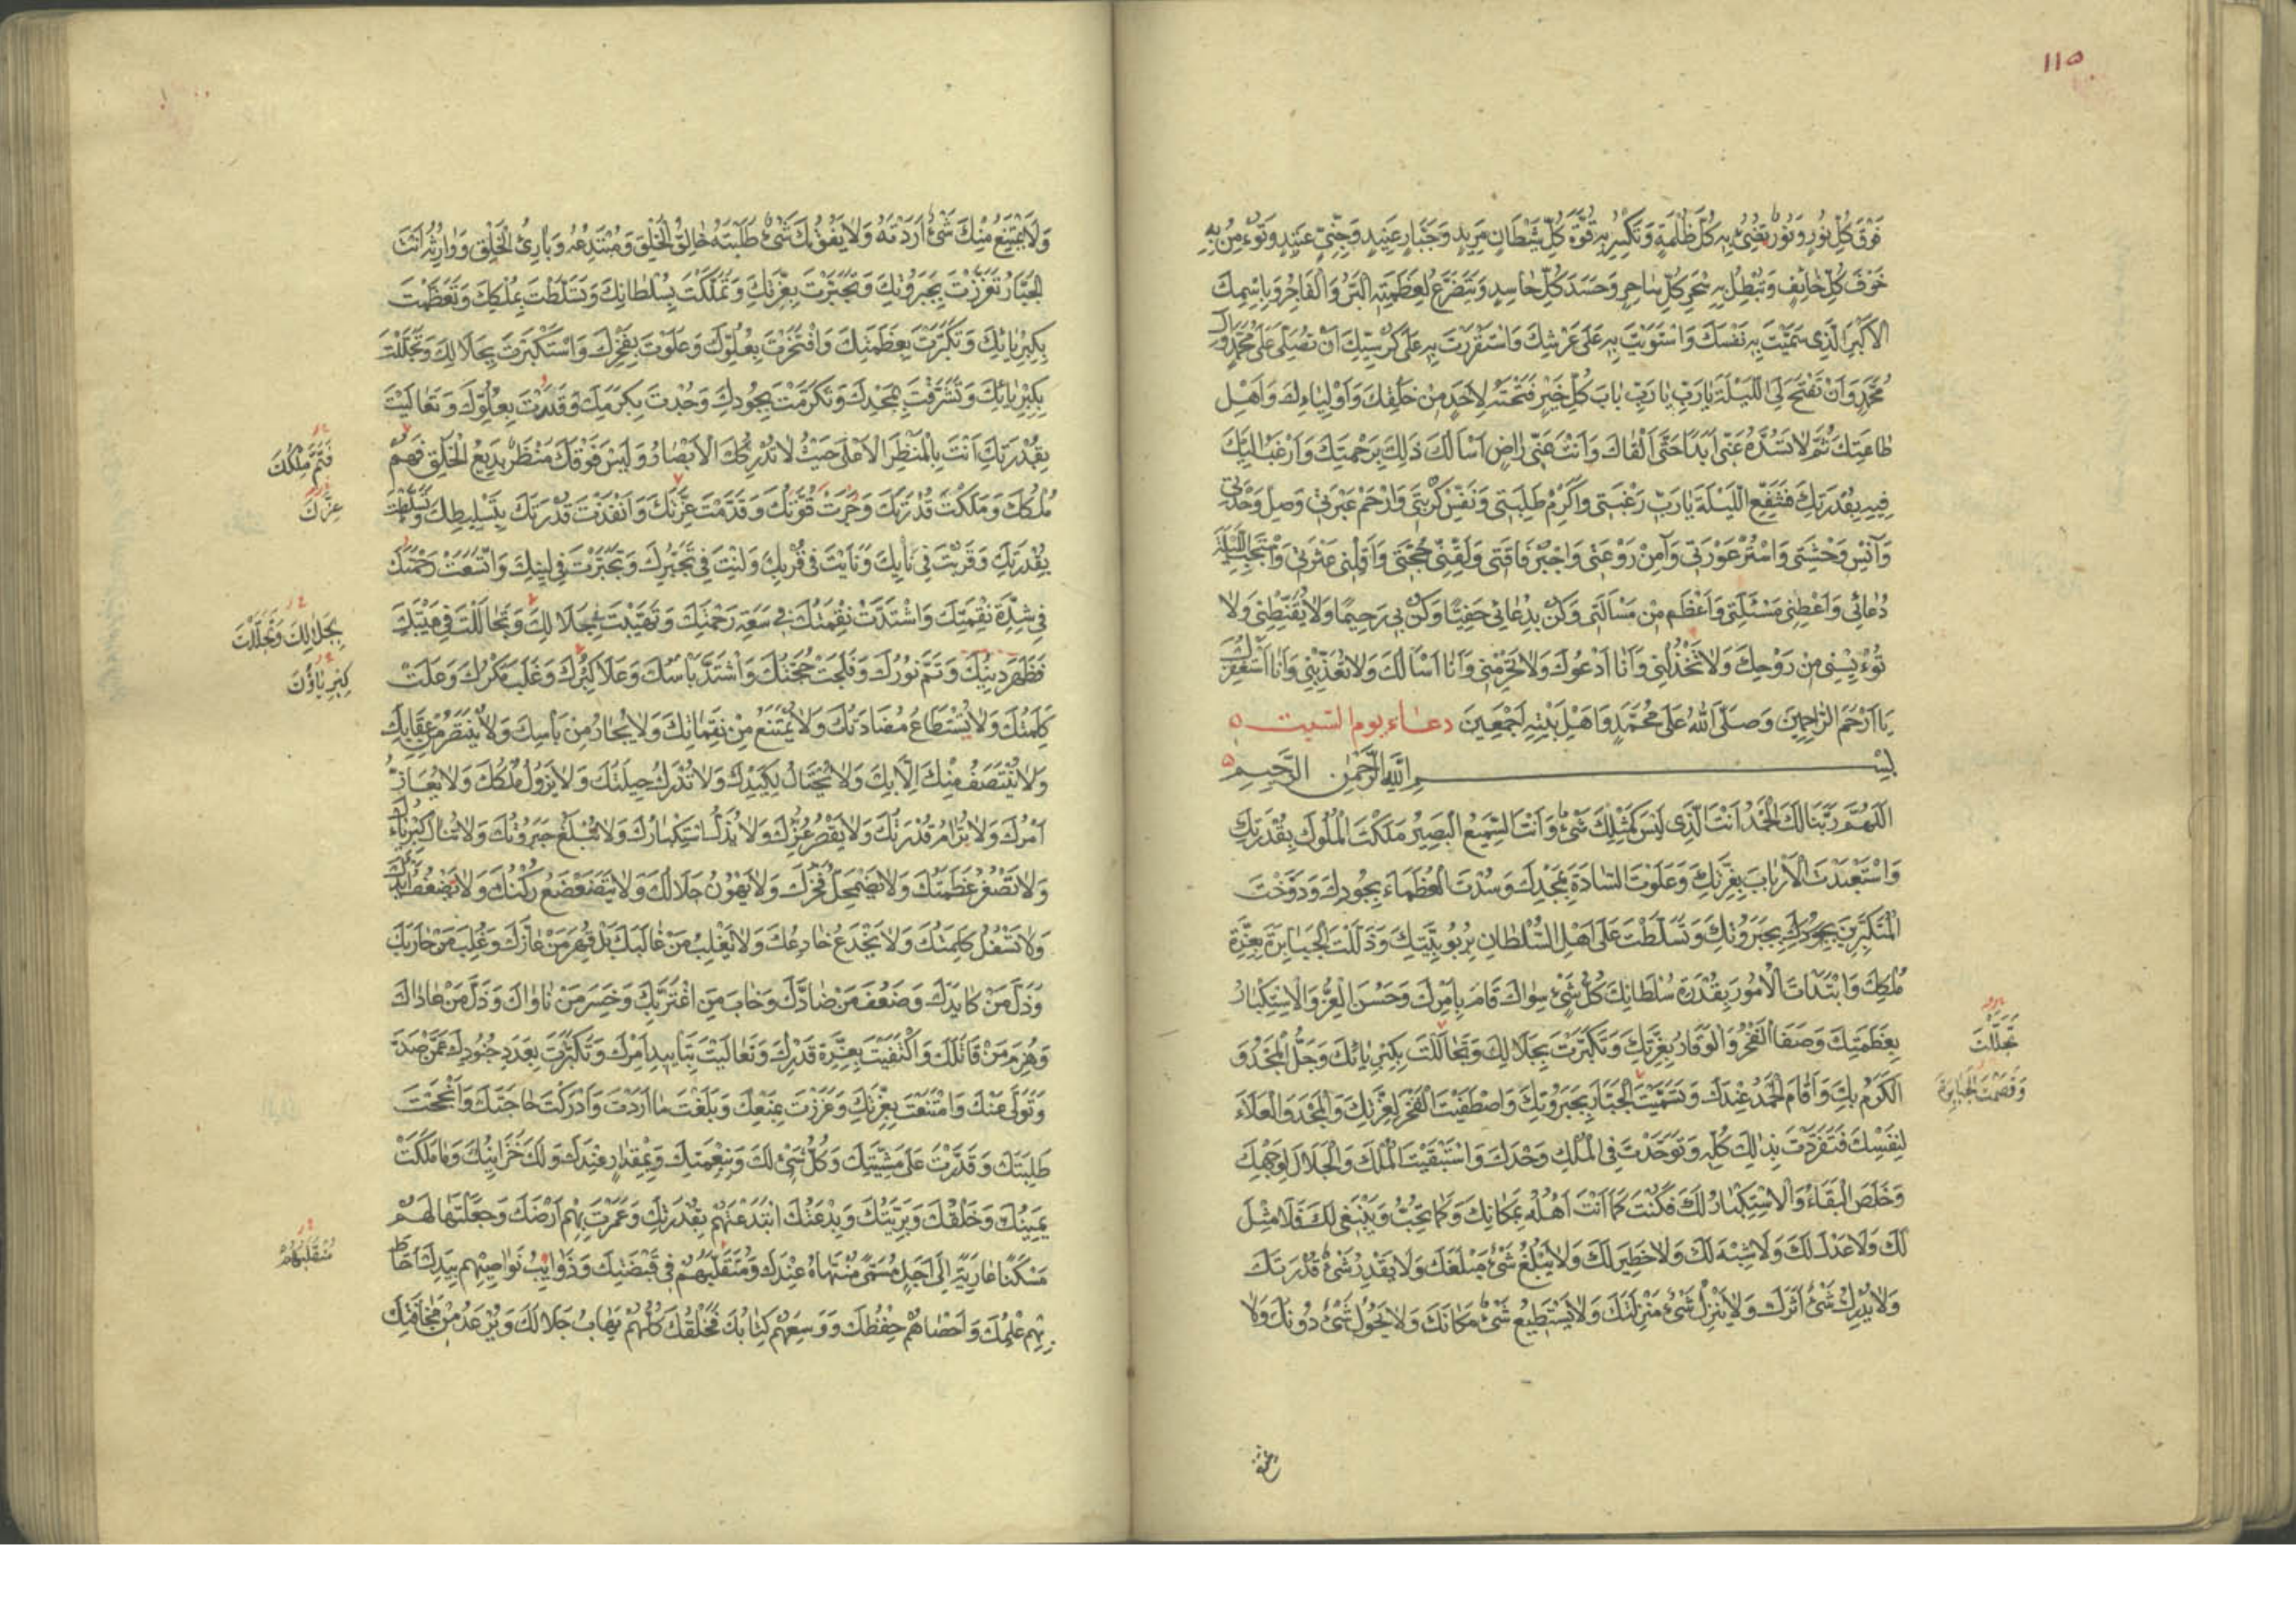 ١١٥
فَوْقَ كُلِّ نُورٍ وَنُورٌ يُضِئُ بِهِ كُلَّ ظُلْمَةٍ وَتُكْسِرُ بِهِ قُوَّةَ كُلِّ شَيْطَانٍ مَرِيدٍ وَجَبَّارٍ عَنِيدٍ وَجِنِّيٍّ عَتِيدٍ وَتُؤْمِنُ بِهِ
خَوْفَ كُلِّ خَائِفٍ وَتُبْطِلُ بِهِ سِحْرَ كُلِّ سَاحِرٍ وَحَسَدَ كُلِّ حَاسِدٍ وَيَتَضَرَّعُ لِعَظَمَتِهِ الْبَرُّ وَالْفَاجِرُ وَبِاسْمِكَ
الْأَكْبَرِ الَّذِى سَمَّيْتَ بِهِ نَفْسَكَ وَاسْتَوَيْتَ بِهِ عَلَى عَرْشِكَ وَاسْتَقْرَرْتَ بِهِ عَلَى كُرْسِيِّكَ أَنْ تُصَلِّىَ عَلَى مُحَمَّدٍ وَآلِ
مُحَمَّدٍ وَأَنْ تَفْتَحَ لِىَ اللَّيْلَةَ يَا رَبِّ يَا رَبِّ بَابَ كُلِّ خَيْرٍ فَتَحْتَهُ لِأَحَدٍ مِنْ خَلْقِكَ وَأَوْلِيَاءِكَ وَأَهْلِ
طَاعَتِكَ ثُمَّ لَا تَسُدُّهُ عَنِّى أَبَدًا حَتَّى أَلْقَاكَ وَأَنْتَ عَنِّى رَاضٍ أَسْأَلُكَ ذَلِكَ بِرَحْمَتِكَ وَأَرْغَبُ إِلَيْكَ
فِيهِ بِقُدْرَتِكَ فَشَفِّعِ اللَّيْلَةَ يَا رَبِّ رَغْبَتِى وَأَكْرِمْ طَلِبَتِى وَنَفِّسْ كُرْبَتِى وَارْحَمْ عَبْرَتِى وَصِلْ وَحْدَتِى
وَآنِسْ وَحْشَتِى وَاسْتُرْ عَوْرَتِى وَآمِنْ رَوْعَتِى وَاجْبُرْ فَاقَتِى وَلَقِّنِّى حُجَّتِى وَأَقِلْنِى عَثْرَتِى وَاسْتَجِبِ اللَّيْلَةَ
دُعَائِى وَأَعْطِنِى مَسْئَلَتِى وَأَعْظَمَ مِنْ مَسْأَلَتِى وَكُنْ بِدُعَائِى حَفِيًّا وَكُنْ بِى رَحِيمًا وَلَا تُقَنِّطْنِى وَلَا
تُوءْيِسْنِى مِنْ رَوْحِكَ وَلَا تَخْذُلْنِى وَأَنَا أَدْعُوكَ وَلَا تَحْرِمْنِى وَأَنَا أَسْأَلُكَ وَلَا تُعَذِّبْنِى وَأَنَا أَسْتَغْفِرُكَ
يَا أَرْحَمَ الرَّاحِمِينَ وَصَلَّى اللّٰهُ عَلَى مُحَمَّدٍ وَأَهْلِ بَيْتِهِ أَجْمَعِينَ دعاء يوم السبت
بِسْمِ اللّٰهِ الرَّحْمٰنِ الرَّحِيمِ
اَللّٰهُمَّ رَبَّنَا لَكَ الْحَمْدُ أَنْتَ الَّذِى لَيْسَ كَمِثْلِكَ شَىْءٌ وَأَنْتَ السَّمِيعُ الْبَصِيرُ مَلَكْتَ الْمُلُوكَ بِقُدْرَتِكَ
وَاسْتَعْبَدْتَ الْأَرْبَابَ بِعِزَّتِكَ وَعَلَوْتَ السَّادَةَ بِمَجْدِكَ وَسُدْتَ الْعُظَمَاءَ بِجُودِكَ وَدَوَّخْتَ
الْمُتَكَبِّرِينَ بِجَبَرُوتِكَ وَتَسَلَّطْتَ عَلَى أَهْلِ السُّلْطَانِ بِرُبُوبِيَّتِكَ وَذَلَّلْتَ الْجَبَابِرَةَ بِعِزَّةِ
مُلْكِكَ وَابْتَدَأْتَ الْأُمُورَ بِقُدْرَةِ سُلْطَانِكَ كُلُّ شَىْءٍ سِوَاكَ قَامَ بِأَمْرِكَ وَحَسُنَ الْعِزُّ وَالْإِسْتِكْبَارُ
بِعَظَمَتِكَ وَصَفَا الْفَخْرُ وَالْوَقَارُ بِعِزَّتِكَ وَتَكَبَّرْتَ بِجَلَالِكَ وَتَجَالَلْتَ بِكِبْرِيَائِكَ وَجَلَّ الْمَجْدُ وَ
تَجَلَّلْتَ
الْكَرَمُ بِكَ وَأَقَامَ الْحَمْدُ عِنْدَكَ وَتَسَمَّيْتَ الْجَبَّارَ بِجَبَرُوتِكَ وَاصْطَفَيْتَ الْفَخْرَ لِعِزَّتِكَ وَالْمَجْدَ وَالْعَلَاءَ
وَقَصَمْتَ الْجَبَابِرَةَ
لِنَفْسِكَ فَتَفَرَّدْتَ بِذَلِكَ كُلِّهِ وَتَوَحَّدْتَ فِى الْمُلْكِ وَحْدَكَ وَاسْتَبْقَيْتَ الْمُلْكَ وَالْجَلَالَ لِوَجْهِكَ
وَخَلَصَ الْبَقَاءُ وَالْإِسْتِكْبَارُ لَكَ فَكُنْتَ كَمَا أَنْتَ أَهْلُهُ بِمَكَانِكَ وَكَمَا تُحِبُّ وَيَنْبَغِى لَكَ فَلَا مِثْلَ
لَكَ وَلَا عَدْلَ لَكَ وَلَا شِبْهَ لَكَ وَلَا خَطِيرَ لَكَ وَلَا يَبْلُغُ شَىْءٌ مَبْلَغَكَ وَلَا يَقْدِرُ شَىْءٌ قُدْرَتَكَ
وَلَا يُدْرِكُ شَىْءٌ أَثَرَكَ وَلَا يَنْزِلُ شَىْءٌ مَنْزِلَتَكَ وَلَا يَسْتَطِيعُ شَىْءٌ مَكَانَكَ وَلَا يَحُولُ شَىْءٌ دُونَكَ وَلَا
وَلَا يَمْتَنِعُ مِنْكَ شَىْءٌ أَرَدْتَهُ وَلَا يَفُوتُكَ شَىْءٌ طَلَبْتَهُ خَالِقُ الْخَلْقِ وَمُبْتَدِعُهُ وَبَارِئُ الْخَلْقِ وَوَارِثُهُ أَنْتَ
الْجَبَّارُ تَعَزَّزْتَ بِجَبَرُوتِكَ وَتَجَبَّرْتَ بِعِزَّتِكَ وَتَمَلَّكْتَ بِسُلْطَانِكَ وَتَسَلَّطْتَ بِمُلْكِكَ وَتَعَظَّمْتَ
بِكِبْرِيَائِكَ وَتَكَبَّرْتَ بِعَظَمَتِكَ وَافْتَخَرْتَ بِعُلُوِّكَ وَعَلَوْتَ بِفَخْرِكَ وَاسْتَكْبَرْتَ بِجَلَالِكَ وَتَجَلَّلْتَ
بِكِبْرِيَائِكَ وَتَشَرَّفْتَ بِمَجْدِكَ وَتَكَرَّمْتَ بِجُودِكَ وَجُدْتَ بِكَرَمِكَ وَقَدَرْتَ بِعُلُوِّكَ وَتَعَالَيْتَ
بِقُدْرَتِكَ أَنْتَ بِالْمَنْظَرِ الْأَعْلَى حَيْثُ لَا تُدْرِكُكَ الْأَبْصَارُ وَلَيْسَ فَوْقَكَ مَنْظَرٌ بَدِيعُ الْخَلْقِ فَهُمْ
فَتَمَّ مُلْكُكَ
مُلْكُكَ وَمَلَكْتَ قُدْرَتَكَ وَجَرَتْ قُوَّتُكَ وَقَدَّمْتَ عِزَّتَكَ وَأَنْفَذْتَ قُدْرَتَكَ بِتَسْلِيطِكَ وَتَسَلَّطْتَ
عِزَّكَ
بِقُدْرَتِكَ وَقَرُبْتَ فِى نَأْيِكَ وَنَأَيْتَ فِى قُرْبِكَ وَلِنْتَ فِى تَجَبُّرِكَ وَتَجَبَّرْتَ فِى لِينِكَ وَاتَّسَعَتْ رَحْمَتُكَ
فِى شِدَّةِ نِقْمَتِكَ وَاشْتَدَّتْ نِقْمَتُكَ فِى سَعَةِ رَحْمَتِكَ وَتَهَيَّبْتَ بِجَلَالِكَ وَتَجَالَلْتَ فِى هَيْبَتِكَ
بِجَلَالِكَ وَتَجَلَّلْتَ
فَظَهَرَ دِينُكَ وَتَمَّ نُورُكَ وَفَلَجَتْ حُجَّتُكَ وَاشْتَدَّ بَأْسُكَ وَعَلَا كِبْرُكَ وَغَلَبَ مَكْرُكَ وَعَلَتْ
كِبْرِيَاؤُكَ
كَلِمَتُكَ وَلَا يُسْتَطَاعُ مُضَادَّتُكَ وَلَا يُمْتَنَعُ مِنْ نَقِمَاتِكَ وَلَا يُجَارُ مِنْ بَأْسِكَ وَلَا يُنْتَصَرُ مِنْ عِقَابِكَ
وَلَا يُنْتَصَفُ مِنْكَ إِلَّا بِكَ وَلَا يُحْتَالُ لِكَيْدِكَ وَلَا تُدْرَكُ حِيلَتُكَ وَلَا يَزُولُ مُلْكُكَ وَلَا يُعَازُّ
أَمْرُكَ وَلَا تُرَامُ قُدْرَتُكَ وَلَا يَقْصُرُ عِزُّكَ وَلَا يُذَلُّ اسْتِكْبَارُكَ وَلَا تُبْلَغُ جَبَرُوتُكَ وَلَا تُنَالُ كِبْرِيَاؤُكَ
وَلَا تَصْغُرُ عَظَمَتُكَ وَلَا يَضْمَحِلُّ فَخْرُكَ وَلَا يَهُونُ جَلَالُكَ وَلَا يَتَضَعْضَعُ رُكْنُكَ وَلَا تَضْعُفُ أَيْدُكَ
وَلَا تَسْفُلُ كَلِمَتُكَ وَلَا يَخْدَعُ خَادِعُكَ وَلَا يَغْلِبُ مَنْ غَالَبَكَ بَلْ قُهِرَ مَنْ عَازَّكَ وَغُلِبَ مَنْ حَارَبَكَ
وَذَلَّ مَنْ كَايَدَكَ وَضَعُفَ مَنْ ضَادَّكَ وَخَابَ مَنِ اغْتَرَّ بِكَ وَخَسِرَ مَنْ نَاوَاكَ وَذَلَّ مَنْ عَادَاكَ
وَهُزِمَ مَنْ قَاتَلَكَ وَاكْتَفَيْتَ بِعِزَّةِ قَدْرِكَ وَتَعَالَيْتَ بِتَأْيِيدِ أَمْرِكَ وَتَكَبَّرْتَ بِعَدَدِ جُنُودِكَ عَمَّنْ صَدَّ
وَتَوَلَّى عَنْكَ وَامْتَنَعْتَ بِعِزَّتِكَ وَعَزَزْتَ بِمَنْعِكَ وَبَلَغْتَ مَا أَرَدْتَ وَأَدْرَكْتَ حَاجَتَكَ وَأَنْجَحْتَ
طَلِبَتَكَ وَقَدَرْتَ عَلَى مَشِيَّتِكَ وَكُلُّ شَىْءٍ لَكَ وَبِنِعْمَتِكَ وَبِمِقْدَارٍ عِنْدَكَ وَلَكَ خَزَائِنُكَ وَمَا مَلَكَتْ
يَمِينُكَ وَخَلْقُكَ وَبَرِيَّتُكَ وَبِدْعَتُكَ ابْتَدَعْتَهُمْ بِقُدْرَتِكَ وَعَمَرْتَ بِهِمْ أَرْضَكَ وَجَعَلْتَهَا لَهُمْ
مَسْكَنًا عَارِيَةً إِلَى أَجَلٍ مُسَمًّى مُنْتَهَاهُ عِنْدَكَ وَمُتَقَلَّبُهُمْ فِى قَبْضَتِكَ وَذَوَائِبُ نَوَاصِيهِمْ بِيَدِكَ أَحَاطَ
مُنْقَلَبُهُمْ
بِهِمْ عِلْمُكَ وَأَحْصَاهُمْ حِفْظُكَ وَوَسِعَهُمْ كِتَابُكَ فَخَلْقُكَ كُلُّهُمْ يَهَابُ جَلَالَكَ وَيُرْعَدُ مِنْ مَخَافَتِكَ